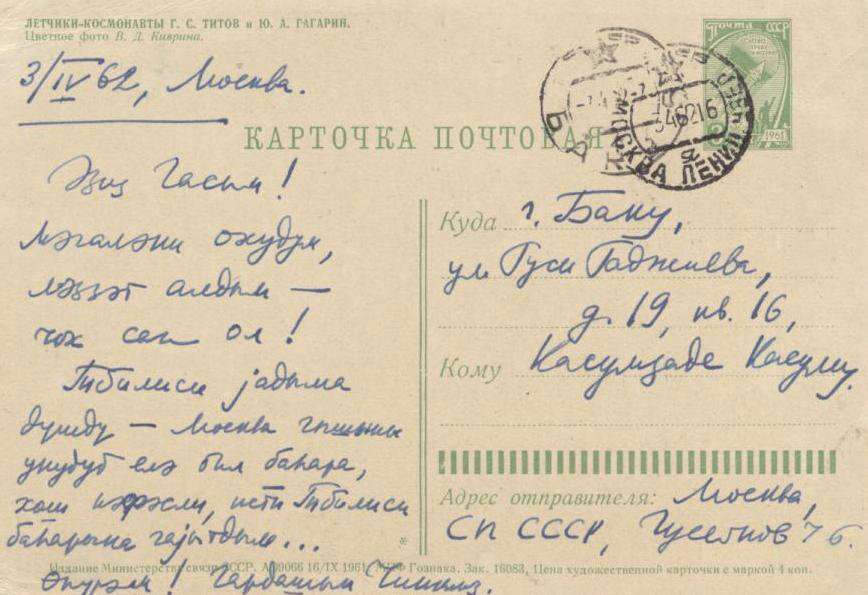 ЛЕТЧИКИ-КОСМОНАВТЫ Г. С. ТИТОВ и Ю. А. ГАГАРИН.
Цветное фото В. Д. Киврина.
3/IV 62, Москва.
ПОЧТА СССР
1961
МОСКВА
КАРТОЧКА ПОЧТОВАЯ
Әзиз Гасым!
Мәгаләни охудум,
ләззәт алдым —
чох сағ ол!
Тбилиси јадыма
дүшдү — Москва гышыны
унудуб елә бил баһара,
хош, исти Тбилиси
баһарына гајытдым...
Өпүрәм! Гардашын Чинкиз.
Куда г. Баку,
ул Гуси Гаджиева,
д. 19, кв. 16,
Кому Касумзаде Касуму.
Адрес отправителя: Москва,
СП СССР, Гусейнов Ч б.
Издание Министерства связи СССР. А 09066 16/IX 1961. Гознака. Зак. 16083. Цена художественной карточки с маркой 4 коп.